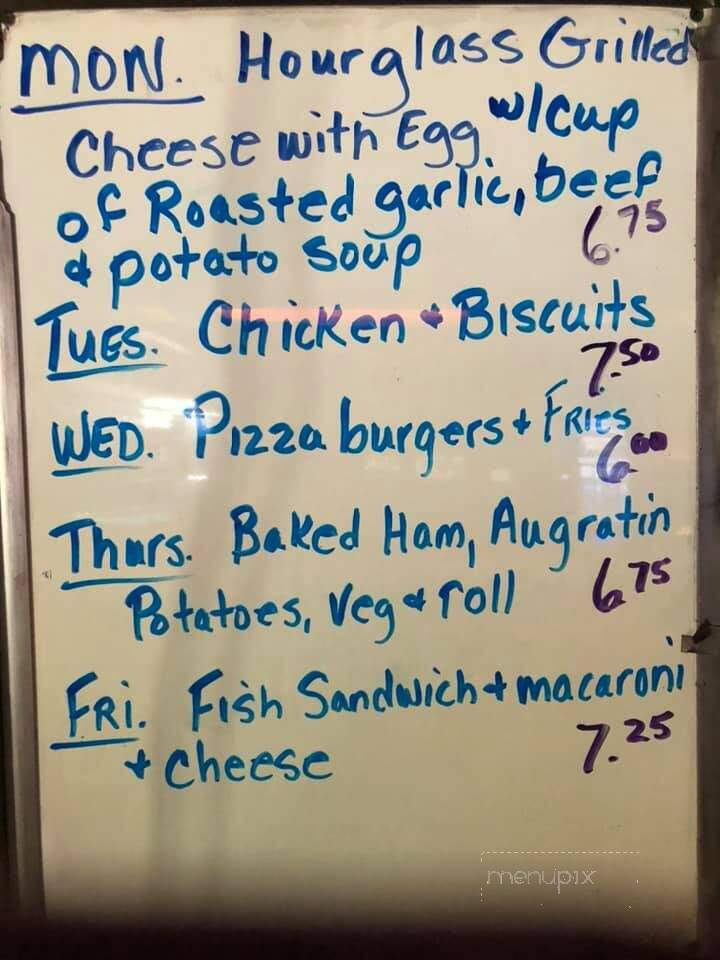 MON. Hourglass Grilled
Cheese with Egg w/cup
of Roasted garlic, beef
& potato soup 6.75
TUES. Chicken & Biscuits
7.50
WED. Pizza burgers + FRIES
6.00
Thurs. Baked Ham, Augratin
Potatoes, Veg & roll 6.75
FRi. Fish Sandwich + macaroni
+ cheese 7.25
menupix